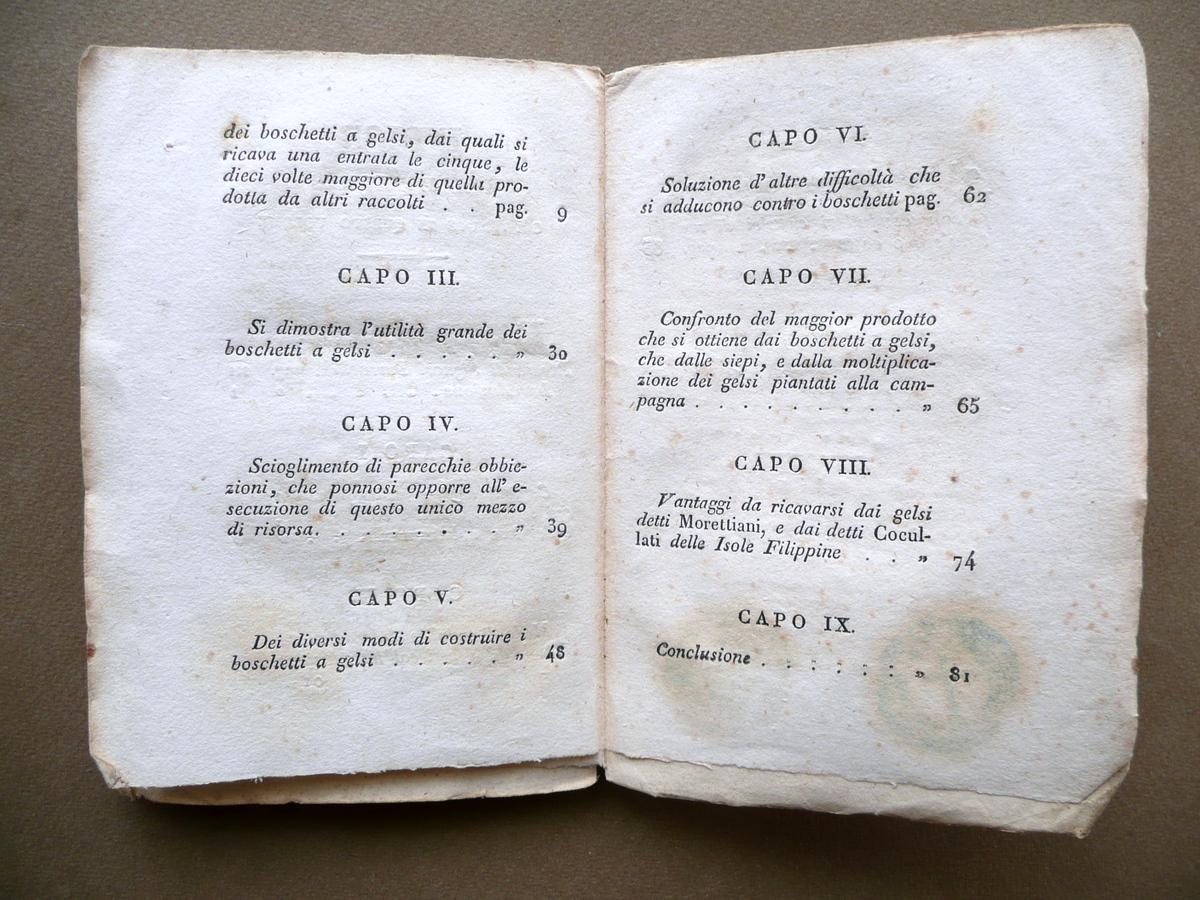 dei boschetti a gelsi, dai quali si
ricava una entrata le cinque, le
dieci volte maggiore di quella pro-
dotta da altri raccolti . . pag. 9
CAPO III.
Si dimostra l'utilità grande dei
boschetti a gelsi . . . . . . „ 30
CAPO IV.
Scioglimento di parecchie obbie-
zioni, che ponnosi opporre all' e-
secuzione di questo unico mezzo
di risorsa. . . . . . . . . „ 39
CAPO V.
Dei diversi modi di costruire i
boschetti a gelsi . . . . . . „ 48
CAPO VI.
Soluzione d'altre difficoltà che
si adducono contro i boschetti pag. 62
CAPO VII.
Confronto del maggior prodotto
che si ottiene dai boschetti a gelsi,
che dalle siepi, e dalla moltiplica-
zione dei gelsi piantati alla cam-
pagna . . . . . . . . . . „ 65
CAPO VIII.
Vantaggi da ricavarsi dai gelsi
detti Morettiani, e dai detti Cocul-
lati delle Isole Filippine . . „ 74
CAPO IX.
Conclusione . . . . . . . „ 81